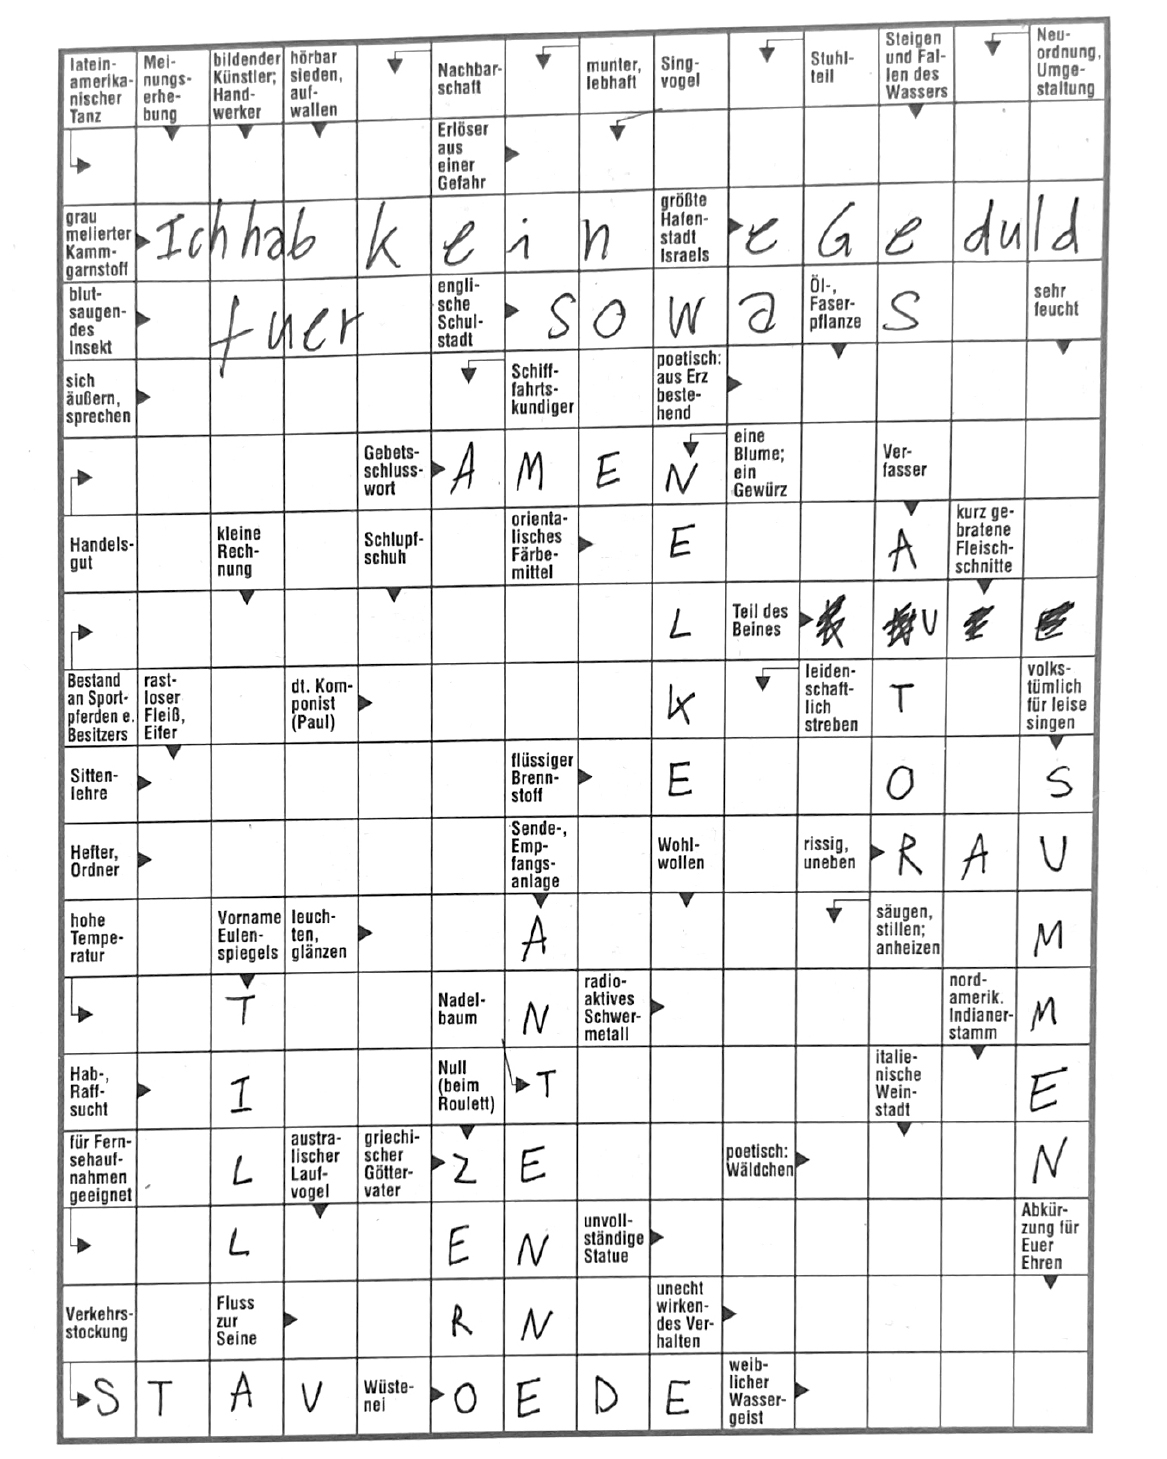 latein-
amerika-
nischer
Tanz
Mei-
nungs-
erhe-
bung
bildender
Künstler;
Hand-
werker
hörbar
sieden,
auf-
wallen
Nachbar-
schaft
munter,
lebhaft
Sing-
vogel
Stuhl-
teil
Steigen
und Fal-
len des
Wassers
Neu-
ordnung,
Umge-
staltung
Erlöser
aus
einer
Gefahr
grau
melierter
Kamm-
garnstoff
Ich hab kein
größte
Hafen-
stadt
Israels
e Geduld
blut-
saugen-
des
Insekt
fuer
engli-
sche
Schul-
stadt
sowa
Öl-,
Faser-
pflanze
s
sehr
feucht
sich
äußern,
sprechen
Schiff-
fahrts-
kundiger
poetisch:
aus Erz
beste-
hend
Gebets-
schluss-
wort
AMEN
eine
Blume;
ein
Gewürz
Ver-
fasser
Handels-
gut
kleine
Rech-
nung
Schlupf-
schuh
orienta-
lisches
Färbe-
mittel
E
A
kurz ge-
bratene
Fleisch-
schnitte
L
Teil des
Beines
U
Bestand
an Sport-
pferden e.
Besitzers
rast-
loser
Fleiß,
Eifer
dt. Kom-
ponist
(Paul)
K
leiden-
schaft-
lich
streben
T
volks-
tümlich
für leise
singen
Sitten-
lehre
flüssiger
Brenn-
stoff
E
O
S
Hefter,
Ordner
Sende-,
Emp-
fangs-
anlage
Wohl-
wollen
rissig,
uneben
RAU
hohe
Tempe-
ratur
Vorname
Eulen-
spiegels
leuch-
ten,
glänzen
A
säugen,
stillen;
anheizen
M
T
Nadel-
baum
N
radio-
aktives
Schwer-
metall
nord-
amerik.
Indianer-
stamm
M
Hab-,
Raff-
sucht
I
Null
(beim
Roulett)
T
italie-
nische
Wein-
stadt
E
für Fern-
sehauf-
nahmen
geeignet
L
austra-
lischer
Lauf-
vogel
griechi-
scher
Götter-
vater
ZE
poetisch:
Wäldchen
N
L
EN
unvoll-
ständige
Statue
Abkür-
zung für
Euer
Ehren
Verkehrs-
stockung
Fluss
zur
Seine
RN
unecht
wirken-
des Ver-
halten
STAU
Wüste-
nei
OEDE
weib-
licher
Wasser-
geist